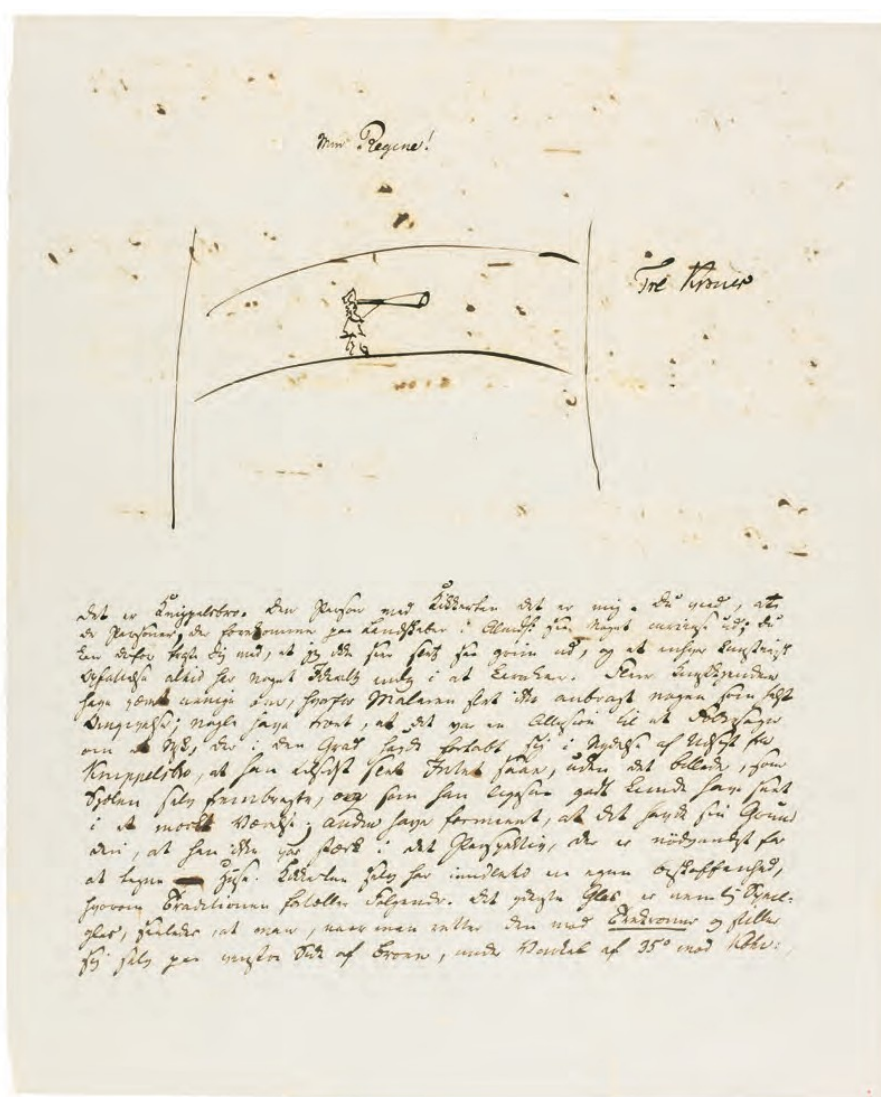 Min Regine!
Tre Kroner
Det er Knippelsbro. Den Person med Kikkerten det er mig. Du veed, at
de Personer, der forekomme paa Landskaber i Almdl: see noget curieuse ud; Du
kan derfor trøste Dig med, at jeg ikke seer saa grim ud, og at enhver kunstnerisk
Opfattelse altid har noget Ideelt i at Flere Kunstkjendere
have været uenige om, hvorfor Maleren slet ikke anbragt nogen som helst
Omgivelse; nogle have troet, at det var en Allusion til et Folkesagn
om en der i den Grad havde fortabt sig i Nydelse af Udsigt fra
Knippelsbro, at han tilsidst slet Intet saae, uden det Billede, som
Sjælen selv frembragte, og som han ligesaa godt kunde have seet
i et mørkt Værelse; andre have formeent, at det havde sin Grund
deri, at han ikke var stærk i det Perspektiv, der er nødvendigt for
at tegne Huse. Kikkerten selv har imidlertid en egen Beskaffenhed,
hvorom Traditionen fortæller Følgende. Det yderste Glas er nemlig Speil-
glas, saaledes, at man, naar man retter den mod Trekroner og stiller
sig selv paa venstre Side af Broen, under Vinkel af 35° mod Kbhv: